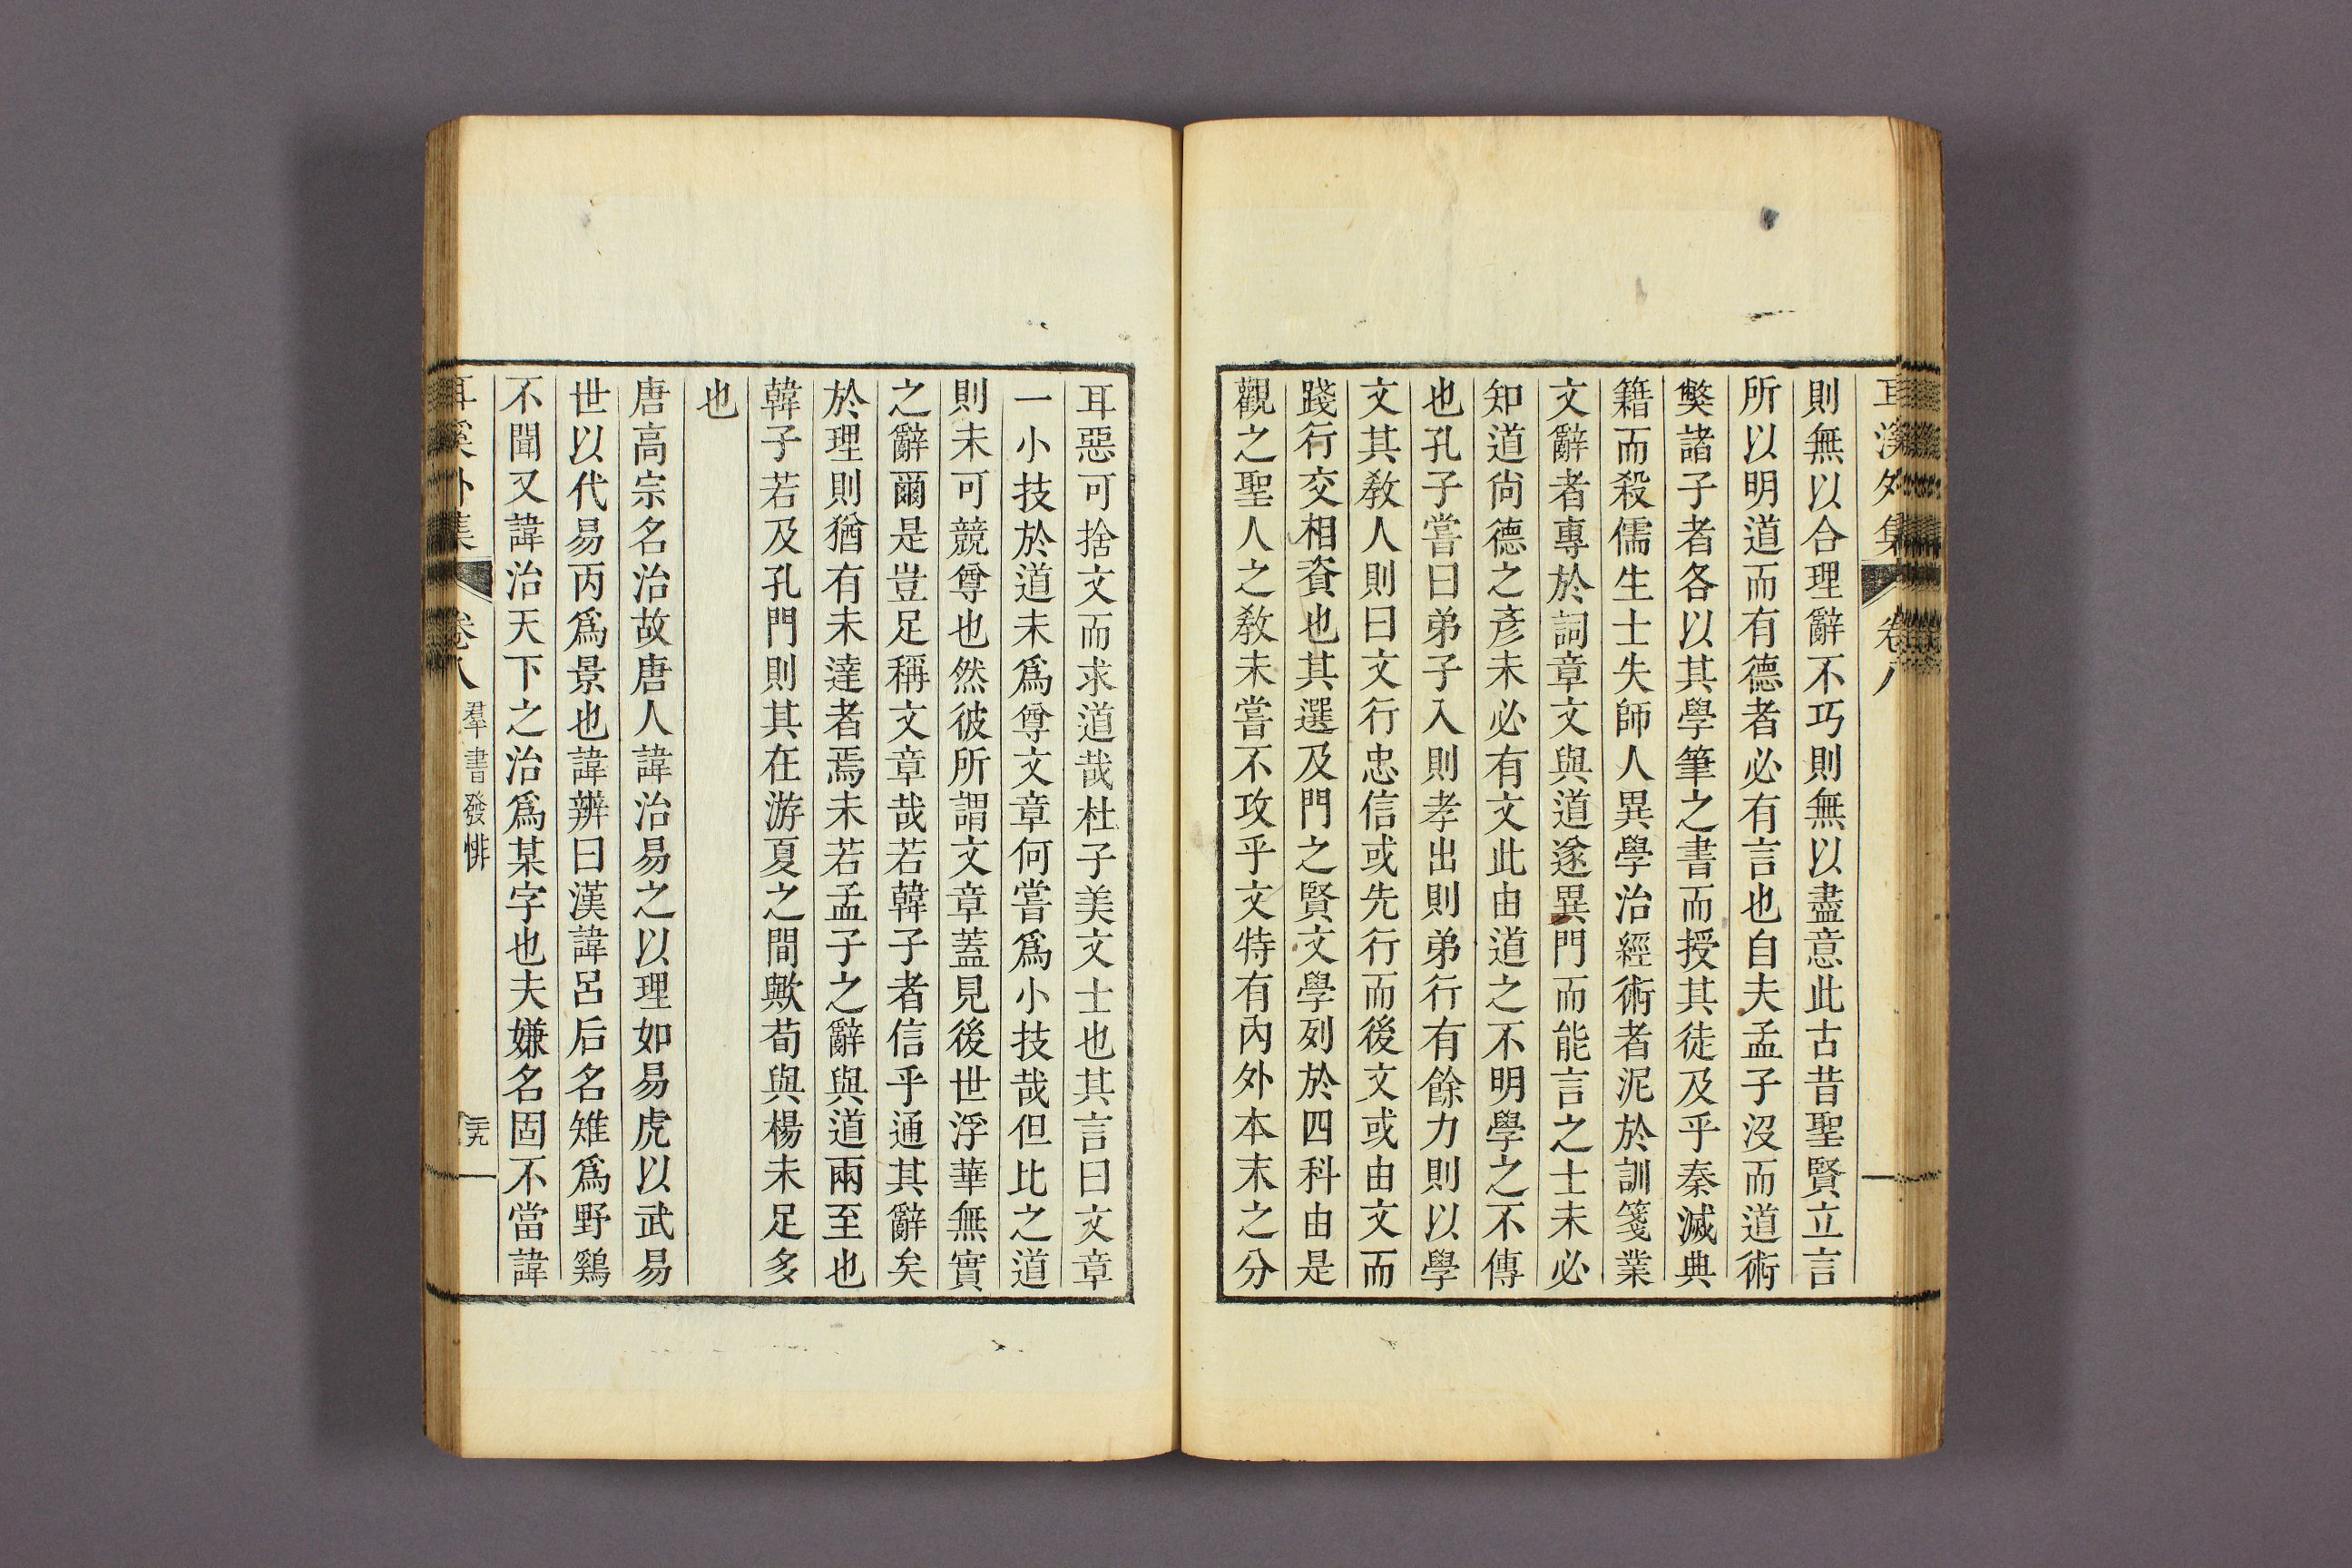 耳溪外集 卷八
則無以合理辭不巧則無以盡意此古昔聖賢立言
所以明道而有德者必有言也自夫孟子沒而道術
獘諸子者各以其學筆之書而授其徒及乎秦滅典
籍而殺儒生士失師人異學治經術者泥於訓箋業
文辭者專於詞章文與道遂異門而能言之士未必
知道尙德之彥未必有文此由道之不明學之不傳
也孔子嘗曰弟子入則孝出則弟行有餘力則以學
文其敎人則曰文行忠信或先行而後文或由文而
踐行交相資也其選及門之賢文學列於四科由是
觀之聖人之敎未嘗不攻乎文特有內外本末之分
耳惡可捨文而求道哉杜子美文士也其言曰文章
一小技於道未爲尊文章何嘗爲小技哉但比之道
則未可競尊也然彼所謂文章蓋見後世浮華無實
之辭爾是豈足稱文章哉若韓子者信乎通其辭矣
於理則猶有未達者焉未若孟子之辭與道兩至也
韓子若及孔門則其在游夏之間歟荀與楊未足多
也
唐高宗名治故唐人諱治易之以理如易虎以武易
世以代易丙爲景也諱辨曰漢諱呂后名雉爲野鷄
不聞又諱治天下之治爲某字也夫嫌名固不當諱
耳溪外集 卷八 羣書發悱 三九